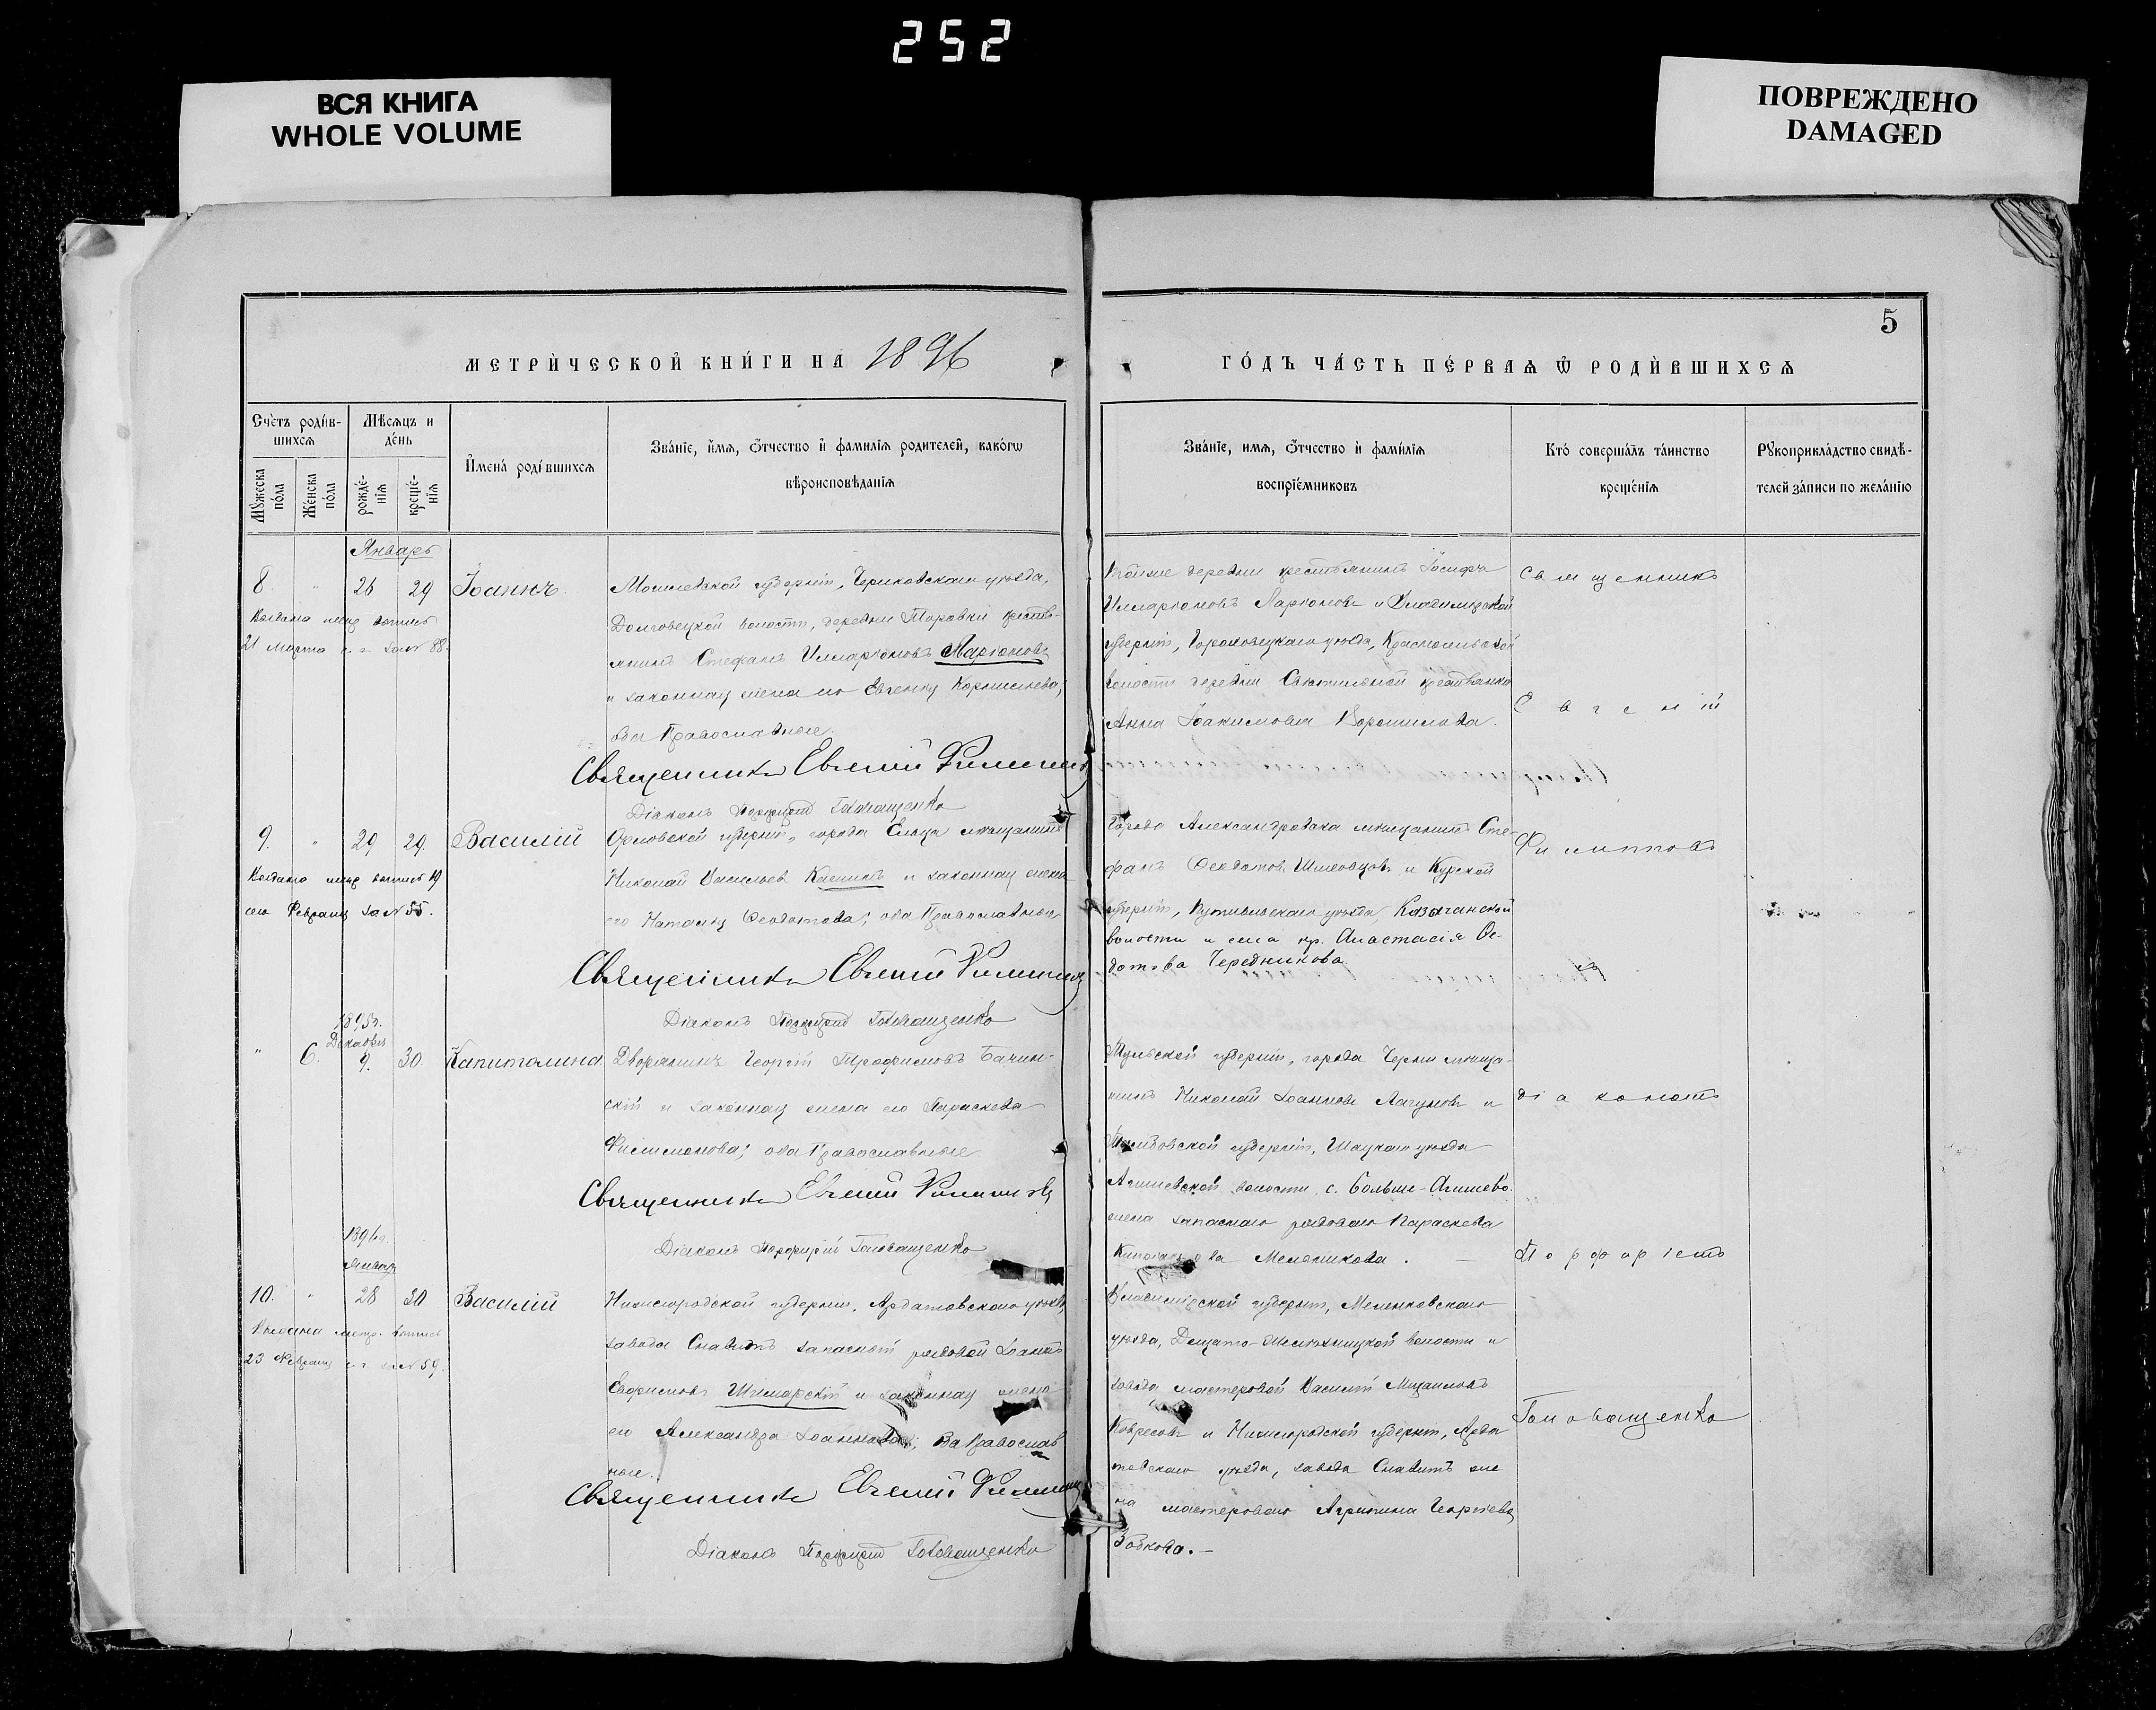 252
ВСЯ КНИГА
WHOLE VOLUME
ПОВРЕЖДЕНО
DAMAGED
МЕТРИ́ЧЕСКОЙ КНИ́ГИ НА 1896
ГО́ДЪ ЧА́СТЬ ПЕ́РВАѦ Ѡ РОДИ́ВШИХСѦ
5
Счетъ роди́в-
шихсѧ
Мѣсѧцъ и
де́нь
Мꙋжеска
по́ла
Же́нска
по́ла
рожде́-
нїѧ
креще́-
нїѧ
Имена́ роди́вшихсѧ
Зва́нїе, и́мѧ, ѻ́тчество и фамилїѧ родителей, како́гѡ
вѣроисповѣданїѧ
Зва́нїе, имѧ, ѻ́тчество и фами́лїѧ
воспрїе́мниковъ
Кто́ соверша́лъ та́инство
креще́нїѧ
Рꙋкоприкла́дство свидѣ́-
телей за́писи по жела́нїю
Январь
8. " 26 29 Іоаннъ.
21 Марта за № 88.
Могилевской губерніи, Чериковскаго уѣзда,
Долговецкой волости, деревни Торовки крестья-
нинъ Стефанъ Илларіоновъ Ларіоновъ
и законная жена его Евгенія Корнильева;
оба Православные.
Священникъ Евгеній Филиппов
Діаконъ Порфирій Головащенко
деревни крестьянинъ Іосифъ
Илларіоновъ Ларіоновъ и Владимірской
губерніи, Гороховецкаго уѣзда, Красносельской
волости деревни крестьянка
Анна Іоакимовна Ворошилова.
Священникъ
Евгеній
9. " 29 29. Василій
Выдана метр. выпись 19
сего Февраля за № 55.
Орловской губерніи, города Ельца мѣщанинъ
Николай Васильев и законная жена
его Наталія Ѳеодотова; оба Православные
Священникъ Евгеній Филиппов
Діаконъ Порфирій Головащенко
Города Александровска мѣщанинъ Сте-
фанъ Ѳеодотов и Курской
губерніи, Путивльскаго уѣзда, Казачанской
волости и села кр. Анастасія Ѳе-
дотова Чередникова.
Филипповъ
1895г.
Декабрь
" 6. 9. 30. Капитолина
Дворянинъ Георгій Трофимовъ Бачин-
скій и законная жена его Параскева
Филимонова; оба Православные
Священникъ Евгеній Филиппов
Діаконъ Порфирій Головащенко
Тульской губерніи, города Черни мѣща-
нинъ Николай Іоаннов Лагунов и
Тамбовской губерніи, Шацкаго уѣзда
Агишевской волости с. Больше-Агишево
жена запаснаго рядоваго Параскева
Мельникова.
діаконъ
Порфирій
1896г.
Январь
10. " 28 30 Василій
Выдана метр. выпись
23 Февраля с. г. за № 59.
Нижегородской губерніи, Ардатовскаго уѣзда,
завода запасный рядовой Іоаннъ
Шиморскій и законная жена
его Александра Іоаннова; оба Православ-
ные.
Священникъ Евгеній Филиппов
Діаконъ Порфирій Головащенко
Владимірской губерніи, Меленковскаго
уѣзда, волости и
завода мастеровой Василій Михаиловъ
и Нижегородской губерніи, Арда-
товскаго уѣзда, завода же-
на мастероваго Агрипина Георгіева
Зобкова.
Головащенко